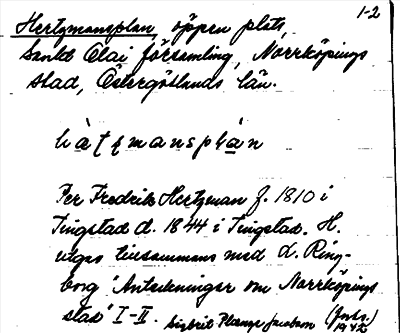 1-2
Hertzmansplan, öppen plats,
Sankt Olai församling, Norrköpings
stad, Östergötlands län.
Per Fredrik Hertzman f. 1810 i
Tingstad d. 1844 i Tingstad. H.
utgav tillsammans med L. Ring-
borg "Anteckningar om Norrköpings
stad" I-II. Jacobson